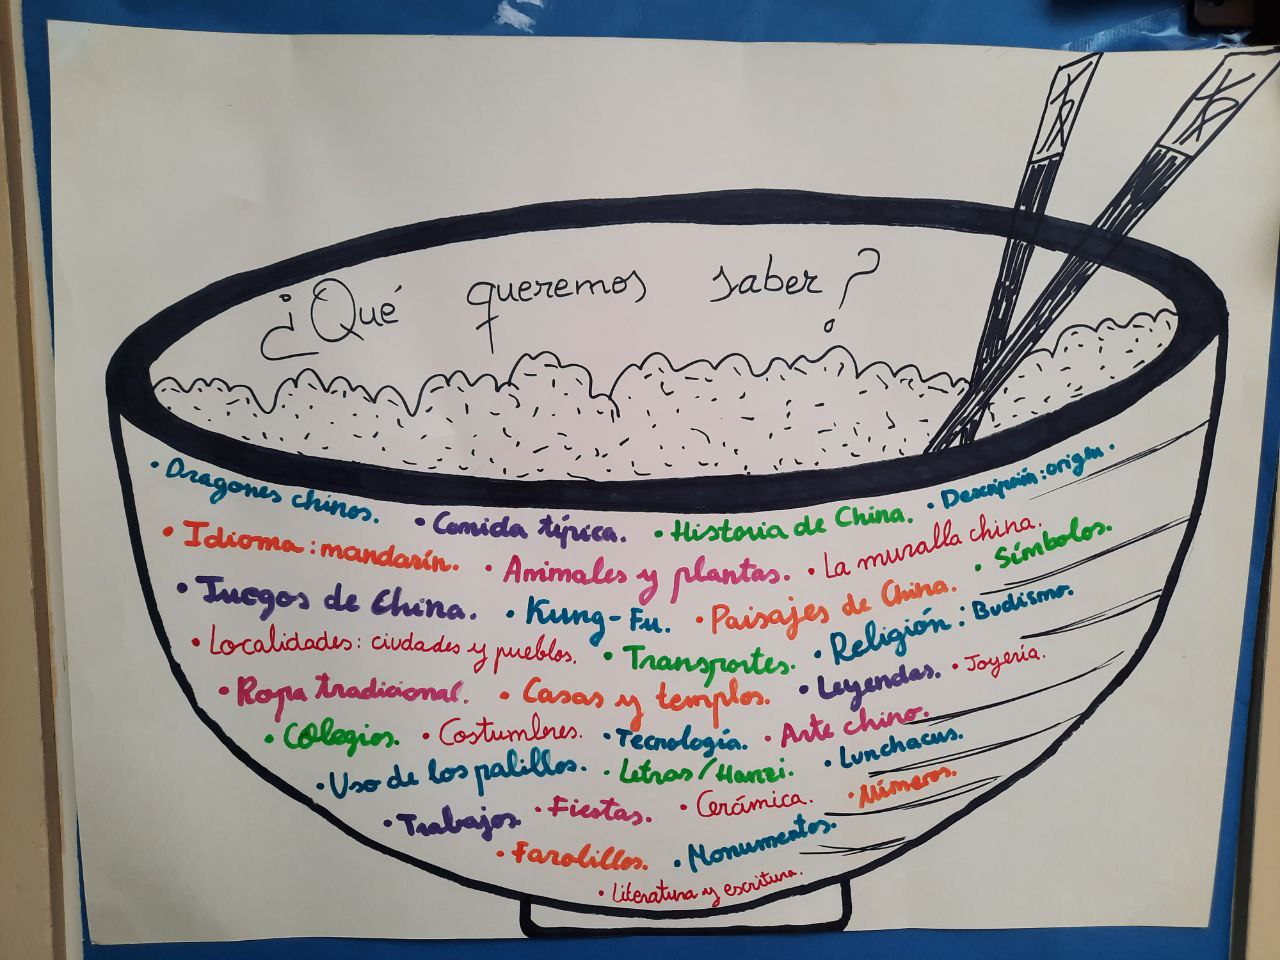 ¿Qué queremos saber?
• Dragones chinos. • Comida típica. • Historia de China. • Descripción: origen.
• Idioma: mandarín. • Animales y plantas. • La muralla china. • Símbolos.
• Juegos de China. • Kung-Fu. • Paisajes de China. • Religión: Budismo.
• Localidades: ciudades y pueblos. • Transportes. • Leyendas. • Joyería.
• Ropa tradicional. • Casas y templos. • Arte chino.
• Colegios. • Costumbres. • Tecnología. • Lunchacus.
• Uso de los palillos. • Letras/Hanzi. • Números.
• Trabajos. • Fiestas. • Cerámica.
• Farolillos. • Monumentos.
• Literatura y escritura.